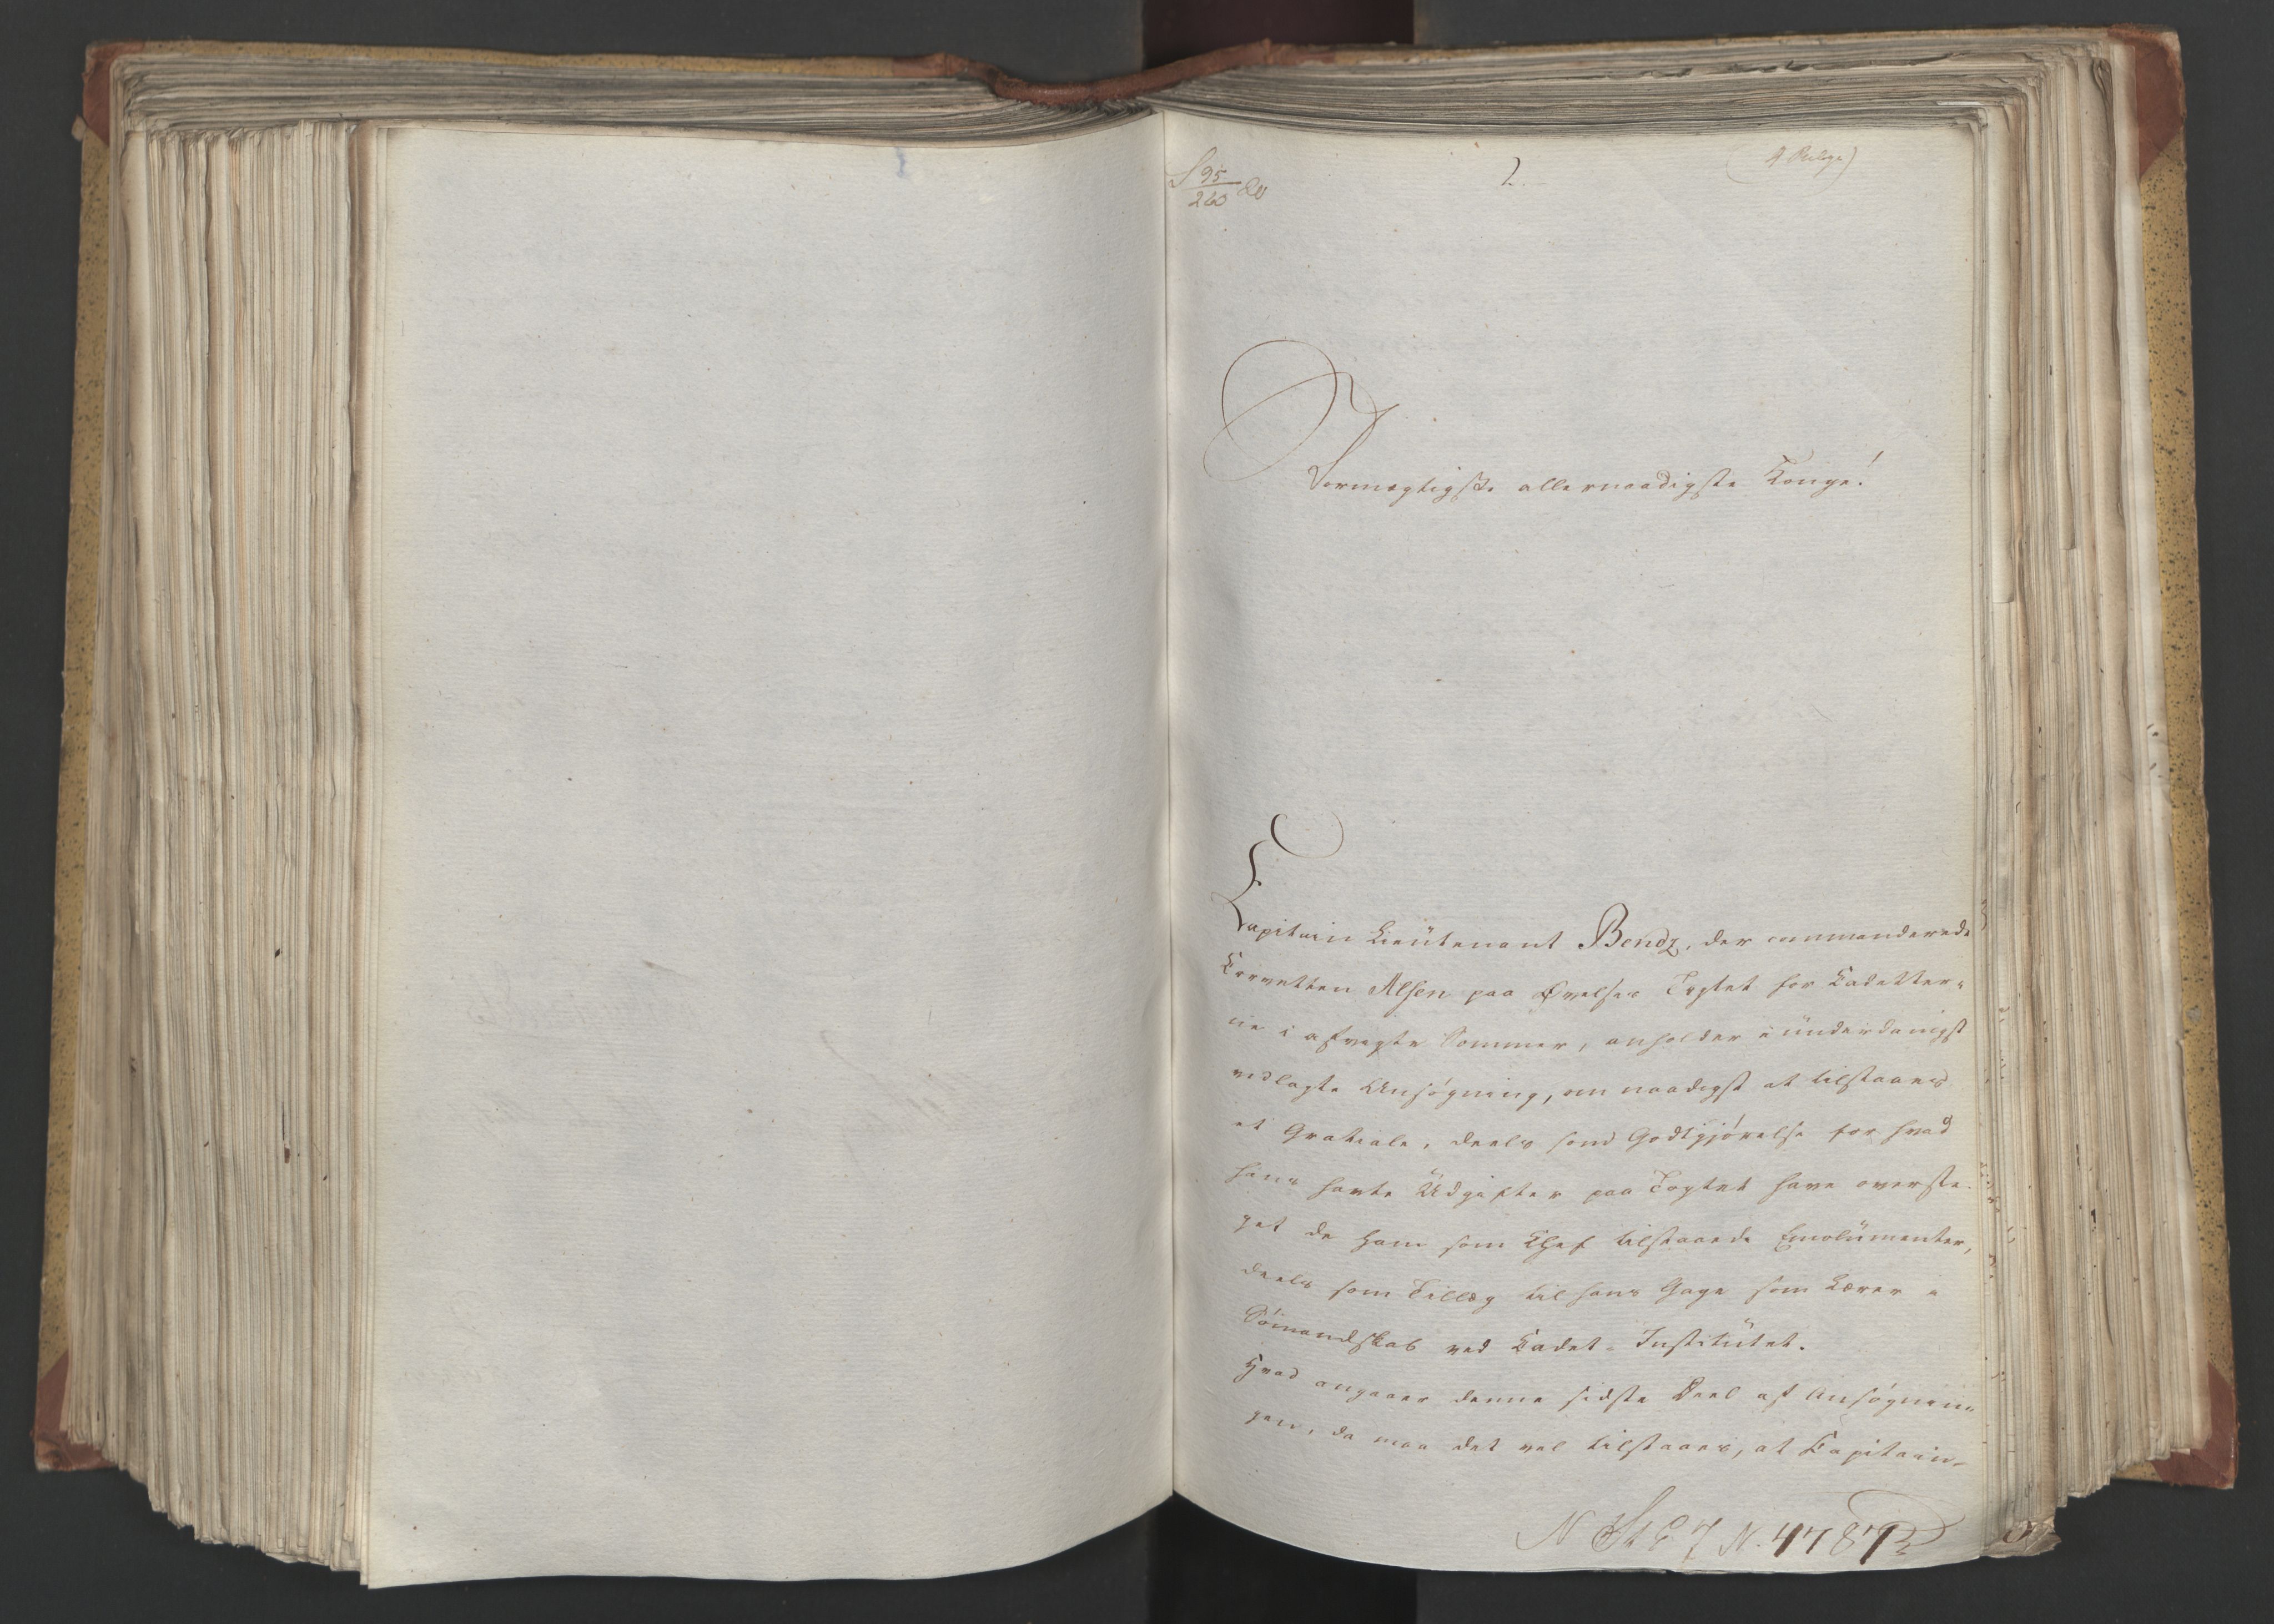 S 95/260 80
2.
Stormægtigste allernaadigste Konge!
Capitain Lieutenant Bendz, der commanderede
Corvetten Alsen paa Øvelses Togtet for Cadetter-
ne i afvigte Sommer, anholder i underdanigst
vedlagte Ansøgning, om naadigst at tilstaaes
et Gratiale, deels som Godtgjørelse for hvad
hans havte Udgifter paa Togtet have overste-
get de ham som Chef tilstaaede Emolumenter,
deels som Tillæg til hans Gage som Lærer i
Sømandskab ved Cadet-Institutet.
Hvad angaaer denne sidste Deel af Ansøgnin-
gen, da maa det vel tilstaaes, at Capitain-